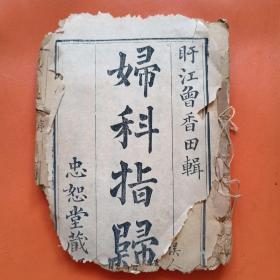 盱江曾香田輯
婦科指歸
忠恕堂藏
序